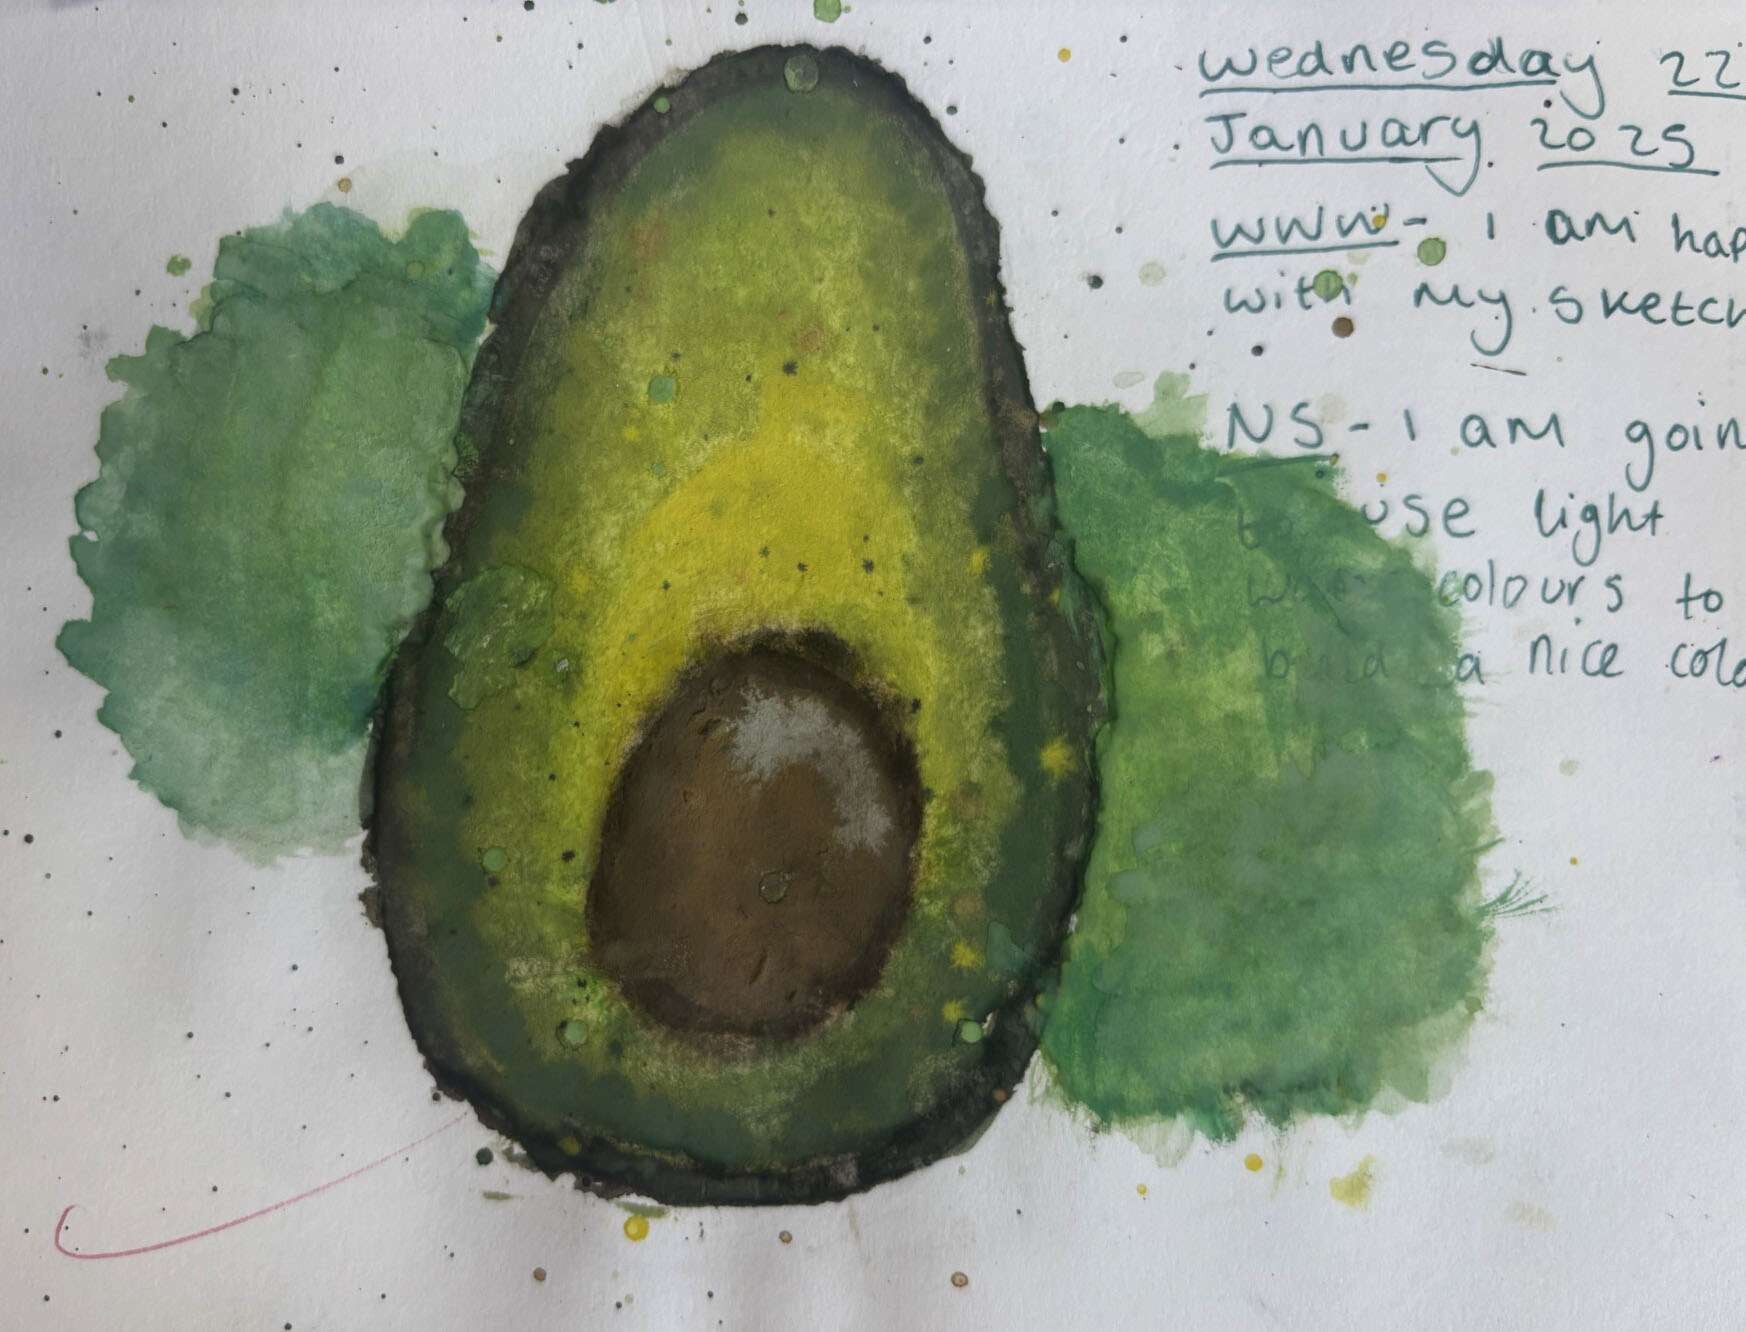 Wednesday 22
January 2025
WWW - I am hap
with my sketch
NS - I am goin
to use light
colours to
build a nice colo